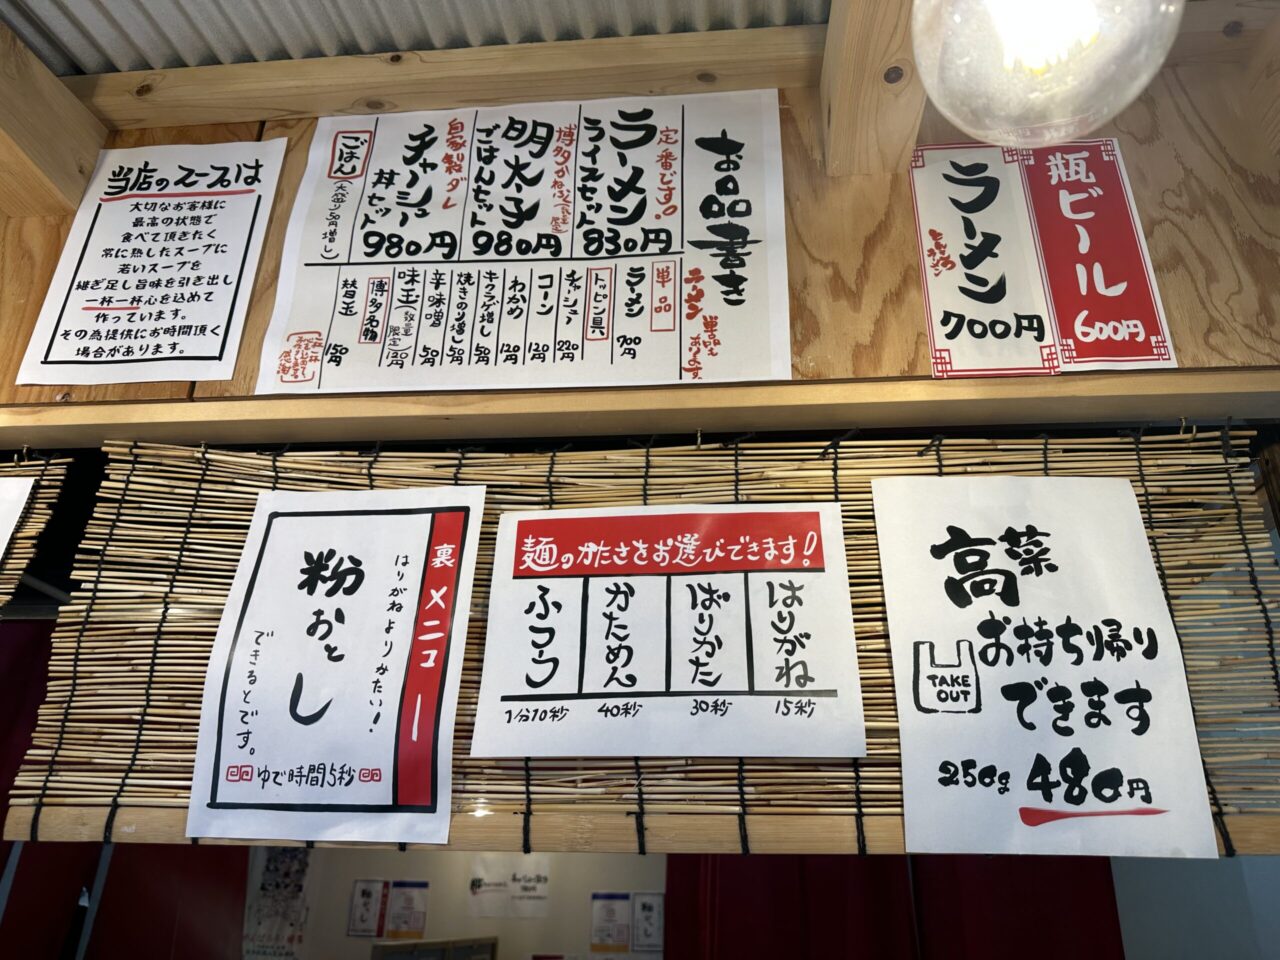 当店のスープは
大切なお客様に
最高の状態で
食べて頂きたく
常に熟したスープに
若いスープを
継ぎ足し旨味を引き出し
一杯一杯心を込めて
作っています。
その為提供にお時間頂く
場合があります。
お品書き
定番です。
ラーメン
ライスセット
830円
明太子
ごはんセット
980円
自家製ダレ
チャーシュー
丼セット
980円
ごはん
(大盛り50円増し)
ラーメン
単品もあります。
単品
ラーメン 700円
トッピン具
チャーシュー 220円
コーン 120円
わかめ 120円
キクラゲ増し 50円
焼きのり増し 50円
辛味噌 50円
味玉(数量限定) 120円
博多名物
替玉 150円
感謝
ラーメン
とんこつラーメン
700円
瓶ビール
600円
裏メニュー
はりがねよりかたい!
粉おとし
できるとです。
ゆで時間5秒
麺のかたさをお選びできます!
はりがね
15秒
ばりかた
30秒
かためん
40秒
ふつう
1分10秒
高菜
お持ち帰り
できます
TAKE
OUT
250g 480円
粉おとし